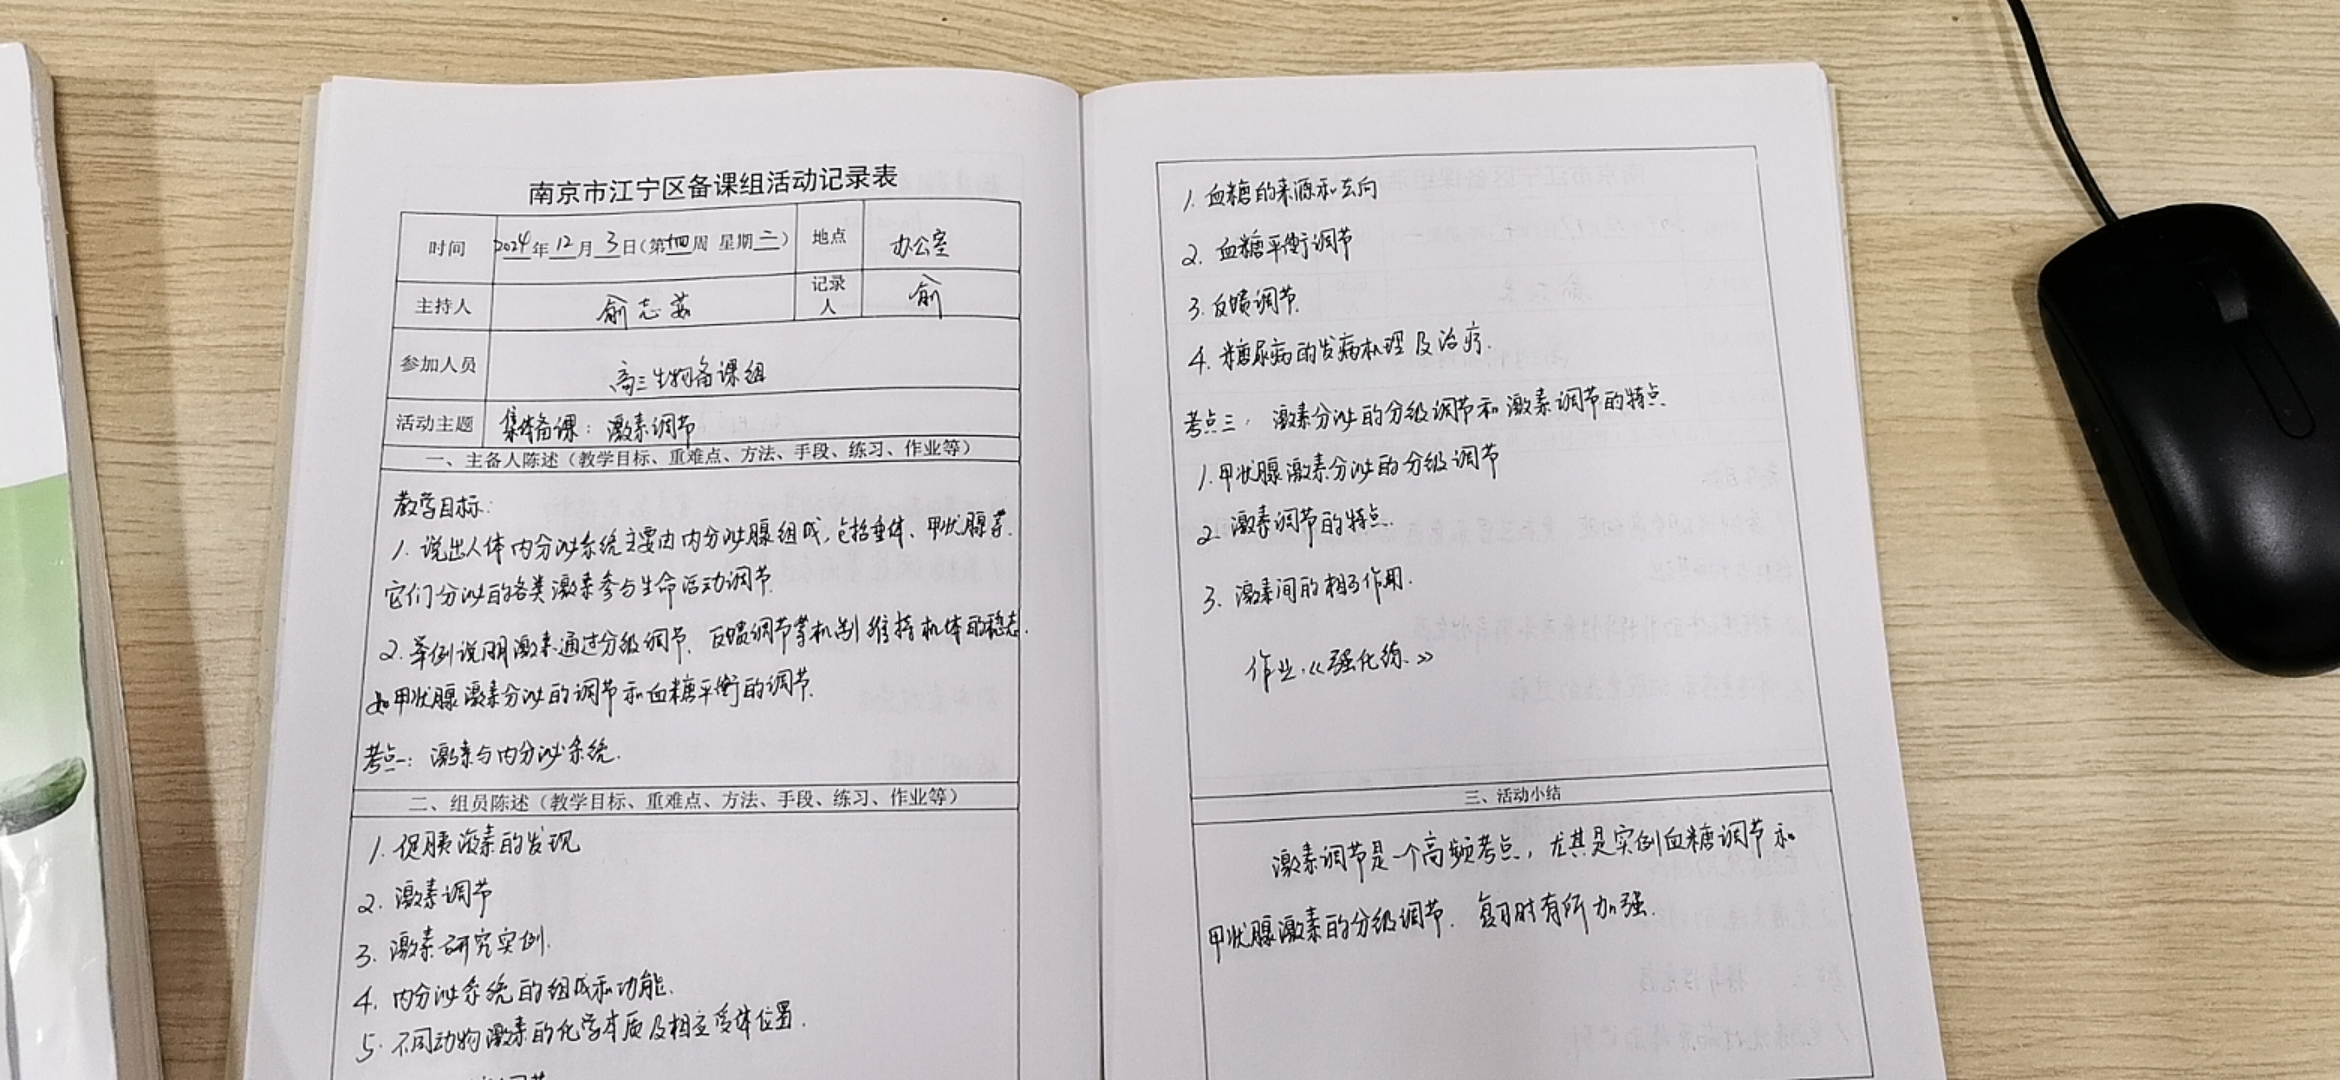 南京市江宁区备课组活动记录表
时间 2024年12月3日(第十四周 星期二) 地点 办公室
主持人 俞志芸 记录人 俞
参加人员 高三生物备课组
活动主题 集体备课：激素调节
一、主备人陈述（教学目标、重难点、方法、手段、练习、作业等）
教学目标：
1. 说出人体内分泌系统主要由内分泌腺组成，包括垂体、甲状腺等.
它们分泌的各类激素参与生命活动调节.
2. 举例说明激素通过分级调节、反馈调节等机制维持机体的稳态.
如甲状腺激素分泌的调节和血糖平衡的调节.
考点一：激素与内分泌系统.
二、组员陈述（教学目标、重难点、方法、手段、练习、作业等）
1. 促胰液素的发现
2. 激素调节
3. 激素研究实例.
4. 内分泌系统的组成和功能.
5. 不同动物激素的化学本质及相应受体位置.
1. 血糖的来源和去向
2. 血糖平衡调节
3. 反馈调节.
4. 糖尿病的发病机理及治疗.
考点三：激素分泌的分级调节和激素调节的特点
1. 甲状腺激素分泌的分级调节
2. 激素调节的特点.
3. 激素间的相互作用.
作业:《强化练》
三、活动小结
激素调节是一个高频考点，尤其是实例血糖调节和
甲状腺激素的分级调节. 复习时有所加强.